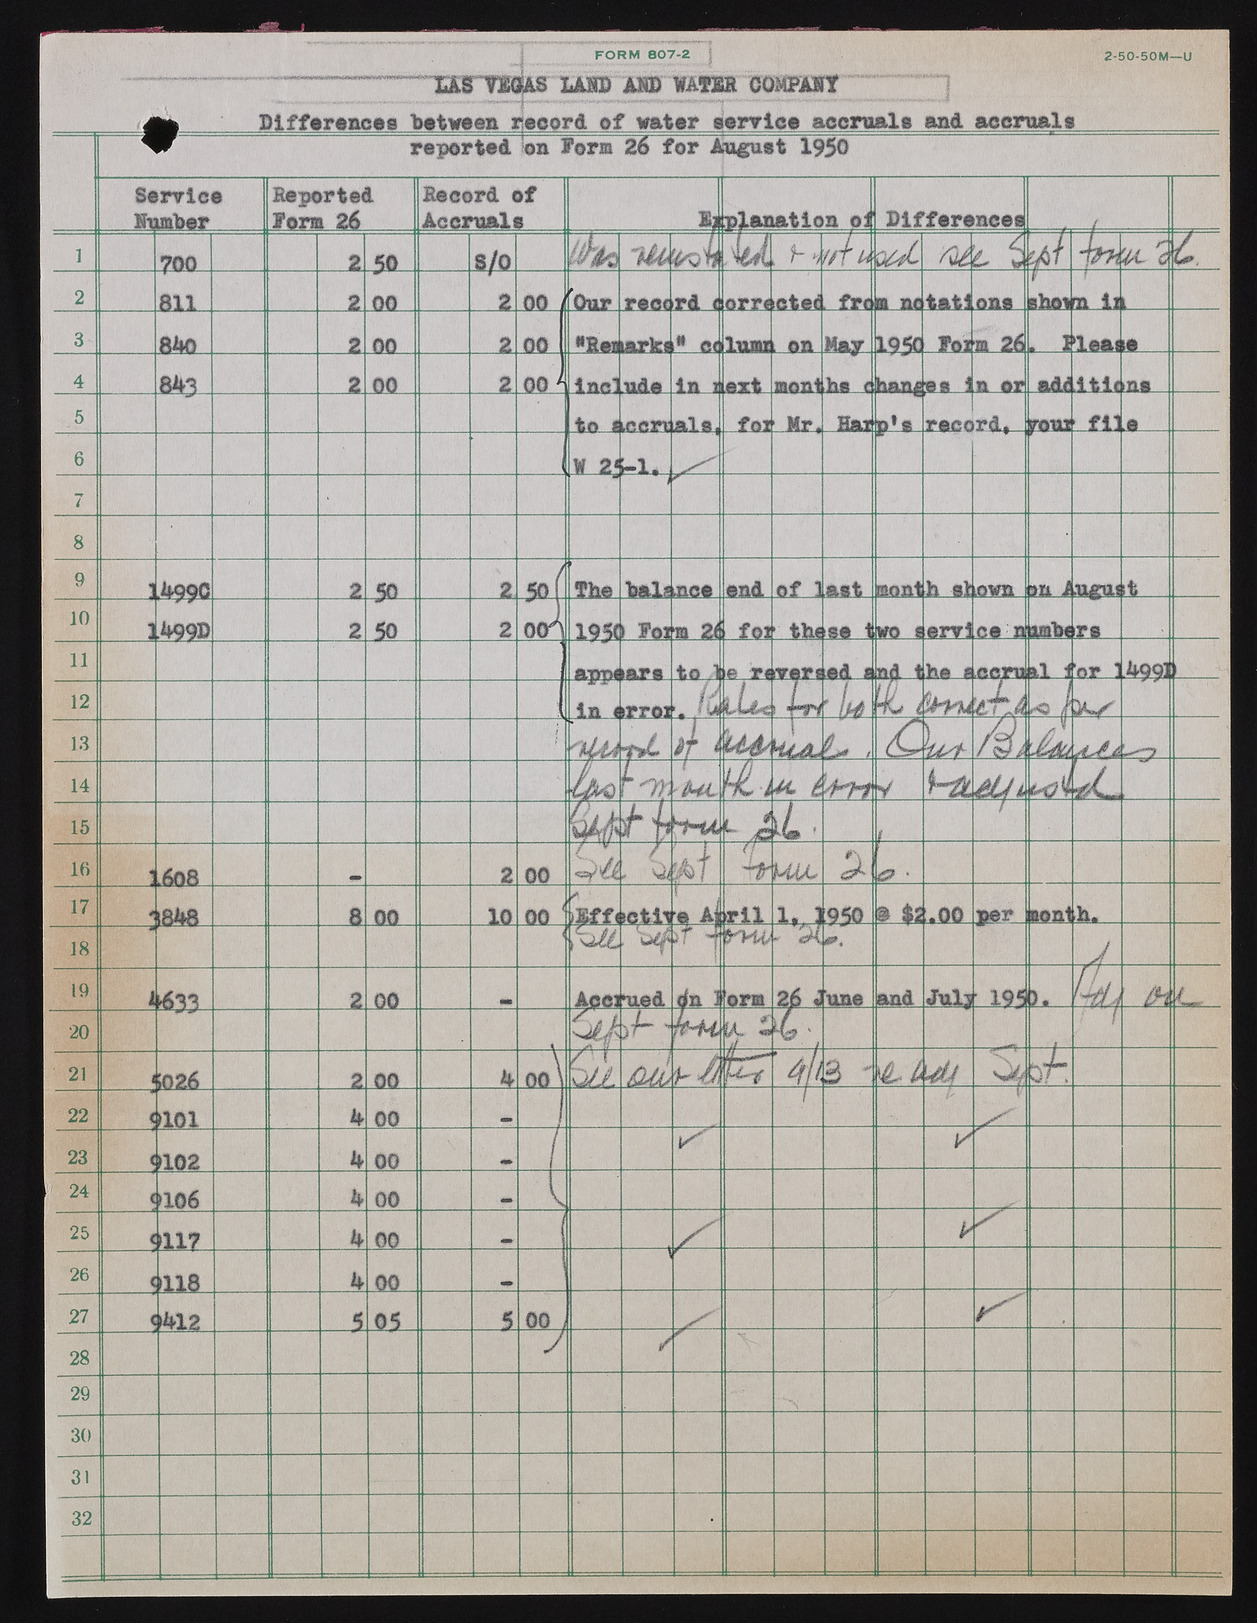 FORM 807-2
2-50-50M—U
LAS VEGAS LAND AND WATER COMPANY
Differences between record of water service accruals and accruals
reported on Form 26 for August 1950
Service Number Reported Form 26 Record of Accruals Explanation of Differences
1 700 2 50 S/O Was reinstated & not used see Sept form 26.
2 811 2 00 2 00 Our record corrected from notations shown in
3 840 2 00 2 00 "Remarks" column on May 1950 Form 26. Please
4 843 2 00 2 00 include in next months changes in or additions
5 to accruals, for Mr. Harp's record, your file
6 W 25-1.
7
8
9 1499C 2 50 2 50 The balance end of last month shown on August
10 1499D 2 50 2 00 1950 Form 26 for these two service numbers
11 appears to be reversed and the accrual for 1499D
12 in error. Rates for both correct as per
13 record of accruals. Our Balances
14 last month in error & adjusted
15 Sept form 26.
16 1608 - 2 00 See Sept form 26.
17 3848 8 00 10 00 Effective April 1, 1950 @ $2.00 per month.
18 See Sept form 26.
19 4633 2 00 - Accrued on Form 26 June and July 1950. Adj on
20 Sept form 26.
21 5026 2 00 4 00 See our letter 9/13 re adj Sept.
22 9101 4 00 -
23 9102 4 00 -
24 9106 4 00 -
25 9117 4 00 -
26 9118 4 00 -
27 9412 5 05 5 00
28
29
30
31
32